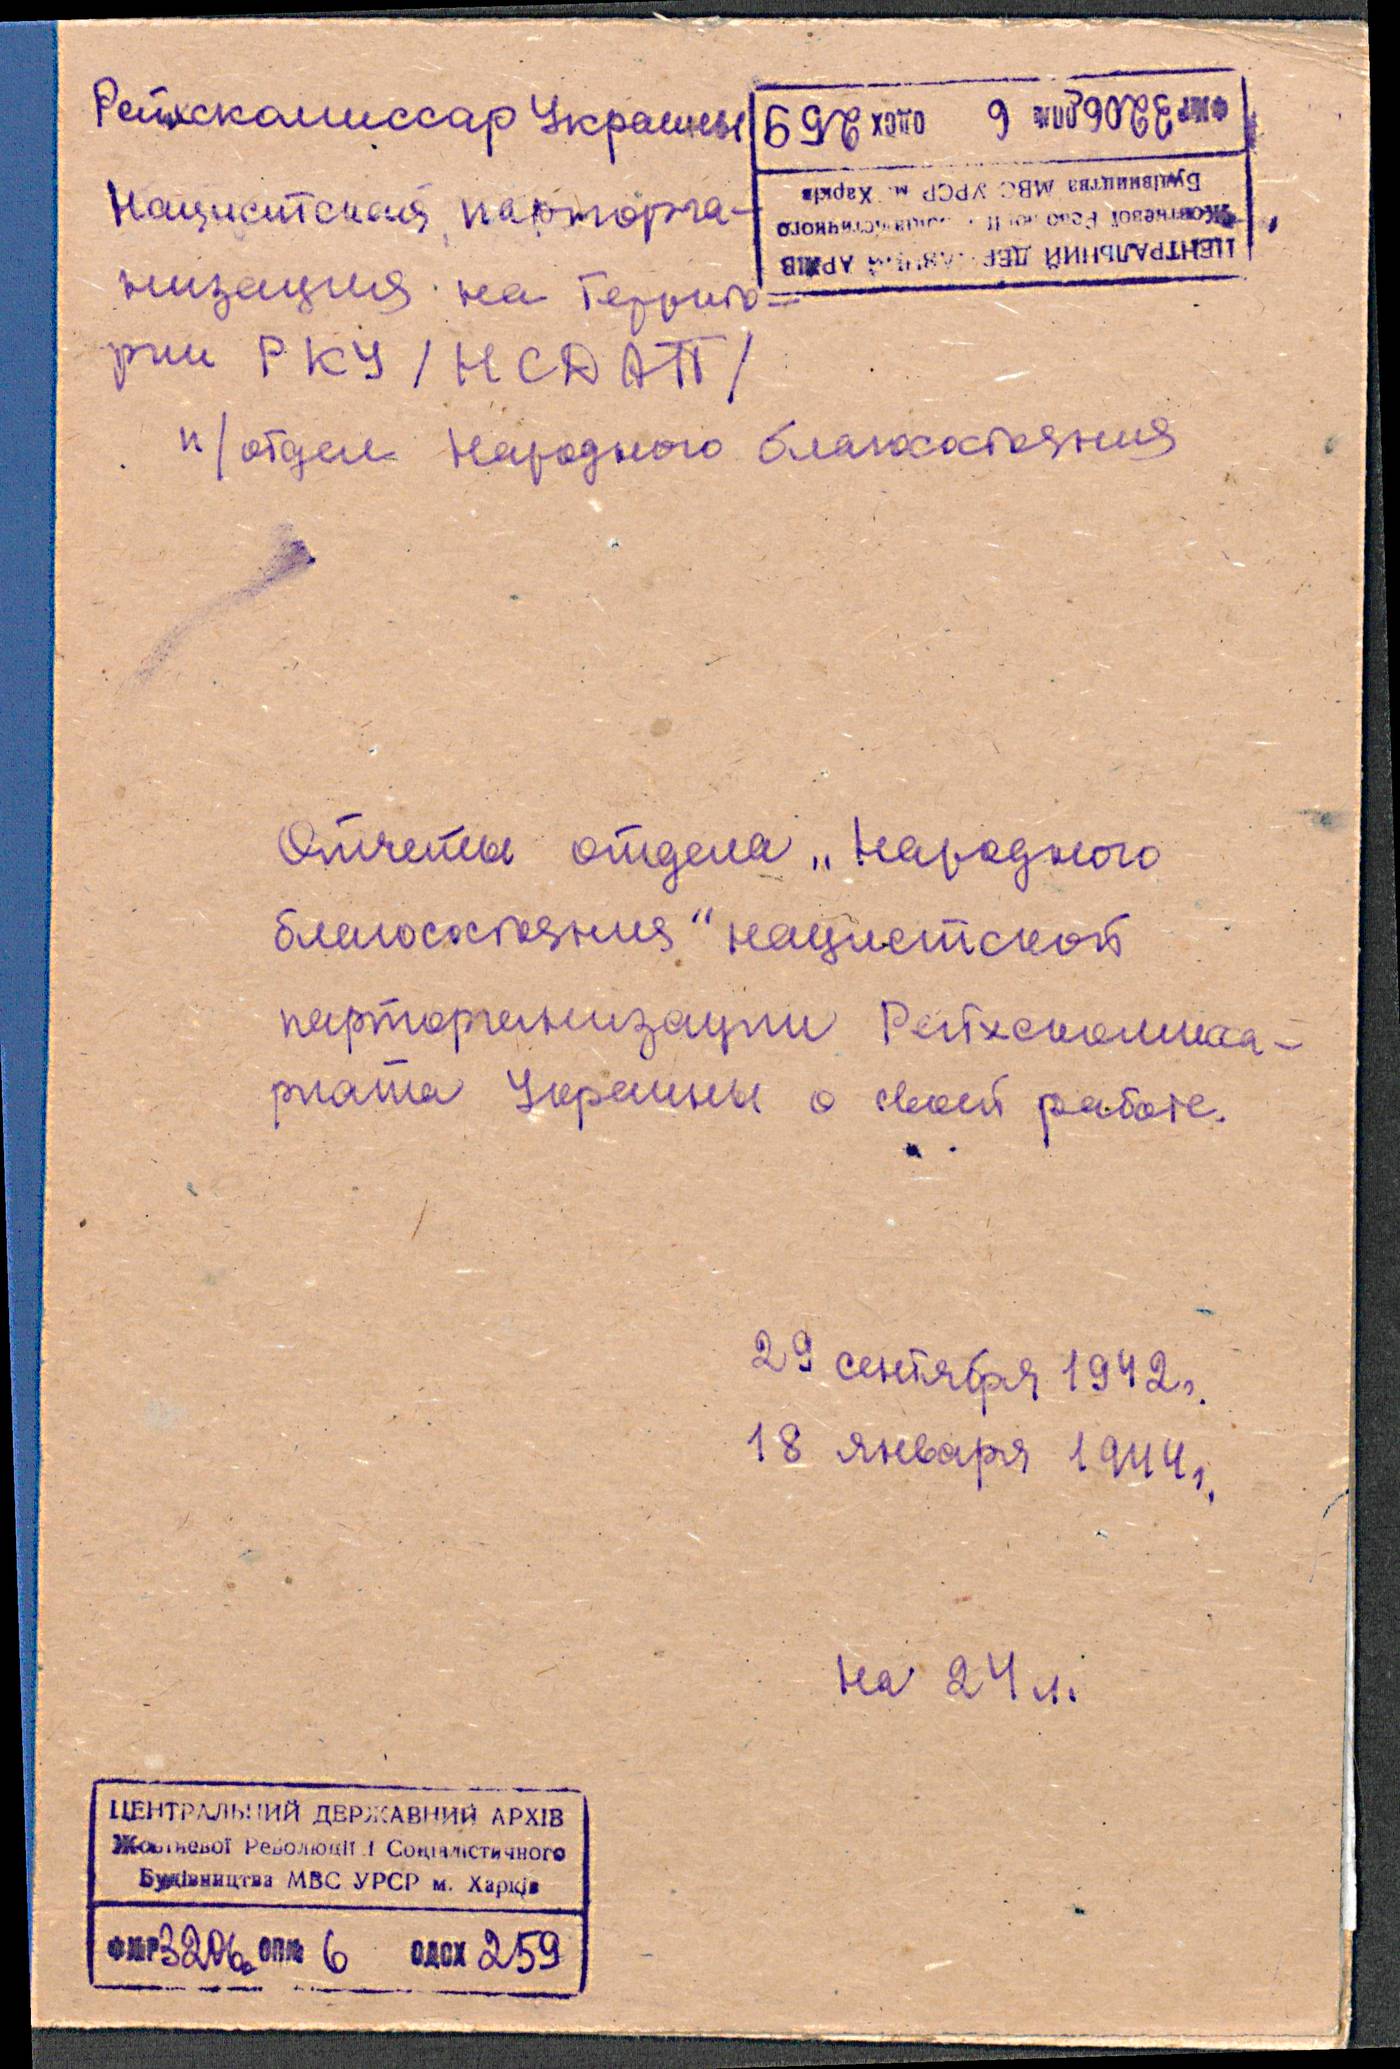 Рейхскомиссар Украины
Нацистская парторга-
низация на террито-
рии РКУ /НСДАП/
п/отдел народного благосостояния
ФЖР 3206 ОПЖ 6 ОДСХ 259
ЦЕНТРАЛЬНИЙ ДЕРЖАВНИЙ АРХІВ
Жовтневої Революції і Соціалістичного
Будівництва МВС УРСР м. Харків
Отчеты отдела „Народного
благосостояния“ нацистской
парторганизации Рейхскомисса-
риата Украины о своей работе.
29 сентября 1942г.
18 января 1944г.
на 24 л.
ЦЕНТРАЛЬНИЙ ДЕРЖАВНИЙ АРХІВ
Жовтневої Революції і Соціалістичного
Будівництва МВС УРСР м. Харків
ФЖР 3206 ОПЖ 6 ОДСХ 259